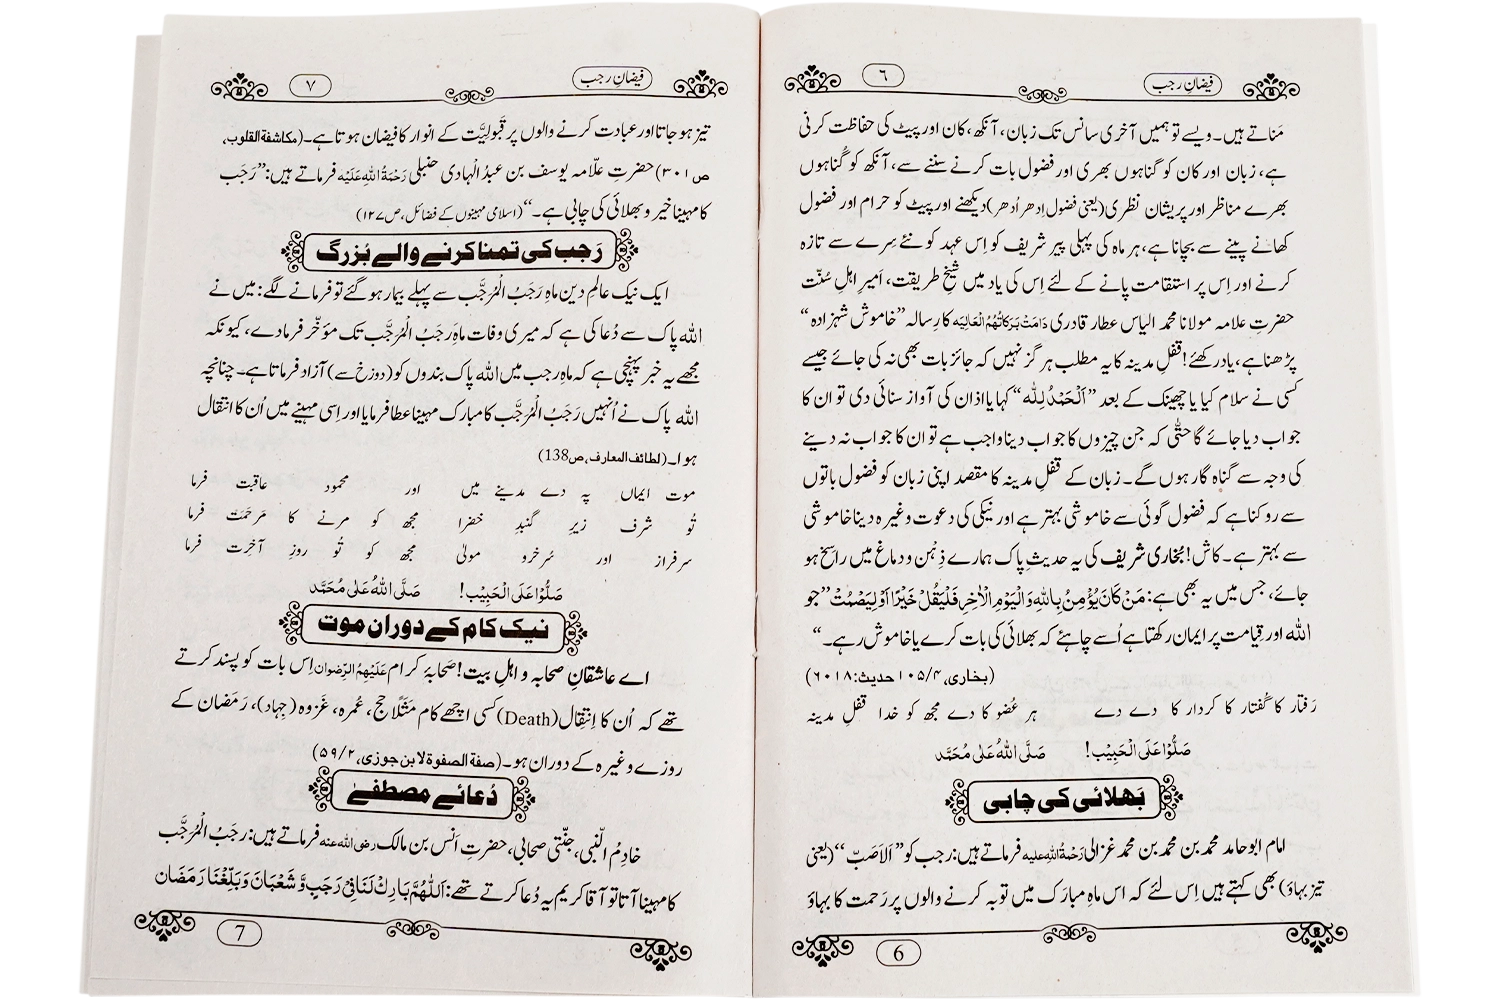 فیضانِ رجب
٦
مَناتے ہیں۔ ویسے تو ہمیں آخری سانس تک زبان، آنکھ، کان اور پیٹ کی حفاظت کرنی
ہے، زبان اور کان کو گناہوں بھری اور فضول بات کرنے سننے سے، آنکھ کو گُناہوں
بھرے مناظر اور پریشان نظری (یعنی فضول اِدھر اُدھر) دیکھنے اور پیٹ کو حرام اور فضول
کھانے پینے سے بچانا ہے، ہر ماہ کی پہلی پیر شریف کو اِس عہد کو نئے سِرے سے تازہ
کرنے اور اِس پر استقامت پانے کے لئے اِس کی یاد میں شیخِ طریقت، اَمیرِ اہلِ سُنّت
حضرتِ علامہ مولانا محمد الیاس عطار قادری دَامَتْ بَرَکَاتُہُمُ الْعَالِیَہ کا رسالہ ”خاموش شہزادہ“
پڑھنا ہے، یاد رکھئے! قفلِ مدینہ کا یہ مطلب ہرگز نہیں کہ جائز بات بھی نہ کی جائے جیسے
کسی نے سلام کیا یا چھینک کے بعد ”اَلْحَمْدُ لِلّٰہ“ کہا یا اذان کی آواز سنائی دی تو ان کا
جواب دیا جائے گا حتّٰی کہ جن چیزوں کا جواب دینا واجب ہے تو ان کا جواب نہ دینے
کی وجہ سے گناہ گار ہوں گے۔ زبان کے قفلِ مدینہ کا مقصد اپنی زبان کو فضول باتوں
سے روکنا ہے کہ فضول گوئی سے خاموشی بہتر ہے اور نیکی کی دعوت وغیرہ دینا خاموشی
سے بہتر ہے۔ کاش! بُخاری شریف کی یہ حدیثِ پاک ہمارے ذِہْن و دماغ میں راسخ ہو
جائے، جس میں یہ بھی ہے: مَنْ کَانَ یُؤْمِنُ بِاللّٰہِ وَالْیَوْمِ الْاٰخِرِ فَلْیَقُلْ خَیْرًا اَوْ لِیَصْمُتْ ”جو
اللہ اور قِیامت پر ایمان رکھتا ہے اُسے چاہئے کہ بھلائی کی بات کرے یا خاموش رہے۔“
(بخاری، ۴/۱۰۵ حدیث: ۶۰۱۸)
رَفتار کا گُفتار کا کردار کا دے دے ہر عُضو کا دے مجھ کو خدا قفلِ مدینہ
صَلُّوْا عَلَی الْحَبِیْب! صَلَّی اللّٰہُ عَلٰی مُحَمَّد
بَھلائی کی چابی
امام ابو حامد محمد بن محمد بن محمد غزالی رَحْمَۃُ اللّٰہِ علیہ فرماتے ہیں: رجب کو ”اَلاَصَبّ“ (یعنی
تیز بہاؤ) بھی کہتے ہیں اِس لئے کہ اس ماہِ مبارَک میں توبہ کرنے والوں پر رَحمت کا بہاؤ
6
فیضانِ رجب
۷
تیز ہو جاتا اور عبادت کرنے والوں پر قَبولِیَّت کے انوار کا فیضان ہوتا ہے۔ (مکاشفۃ القلوب،
ص۳۰۱) حضرتِ علّامہ یوسف بن عبدُ الہادی حنبلی رَحْمَۃُ اللّٰہِ عَلَیْہ فرماتے ہیں: ”رَجَب
کا مہینا خیر و بھلائی کی چابی ہے۔“ (اسلامی مہینوں کے فضائل، ص۱۲۷)
رَجب کی تمنا کرنے والے بُزرگ
ایک نیک عالمِ دین ماہِ رَجَبُ الْمُرجَّب سے پہلے بیمار ہو گئے تو فرمانے لگے: میں نے
اللہ پاک سے دُعا کی ہے کہ میری وفات ماہِ رَجَبُ الْمُرجَّب تک مؤخّر فرما دے، کیونکہ
مجھے یہ خبر پہنچی ہے کہ ماہِ رجب میں اللہ پاک بندوں کو (دوزخ سے) آزاد فرماتا ہے۔ چنانچہ
اللہ پاک نے اُنہیں رَجَبُ الْمُرجَّب کا مبارک مہینا عطا فرمایا اور اِسی مہینے میں اُن کا انتقال
ہوا۔ (لطائف المعارف، ص138)
موت ایماں پہ دے مدینے میں اور محمود عاقبت فرما
تُو شرف زیرِ گنبدِ خضرا مجھ کو مرنے کا مَرحَمَت فرما
سرفراز اور سُرخرو مولیٰ مجھ کو تُو روزِ آخِرت فرما
صَلُّوْا عَلَی الْحَبِیْب! صَلَّی اللّٰہُ عَلٰی مُحَمَّد
نیک کام کے دوران موت
اے عاشقانِ صحابہ و اہلِ بیت! صَحابۂ کرام عَلَیْہِمُ الرِّضْوَان اِس بات کو پسند کرتے
تھے کہ اُن کا اِنتِقال (Death) کسی اچھے کام مَثَلًا حج، عُمرہ، غَزوہ (جہاد)، رَمَضان کے
روزے وغیرہ کے دوران ہو۔ (صفۃ الصفوۃ لابن جوزی، ۲/۵۹)
دُعائے مصطفےٰ
خادِمُ النّبی، جنّتی صحابی، حضرتِ اَنس بن مالک رضی اللہ عنہ فرماتے ہیں: رجَبُ الْمُرجَّب
کا مہینا آتا تو آقا کریم یہ دُعا کرتے تھے: اَللّٰہُمَّ بَارِکْ لَنَا فِیْ رَجَبٍ وَّ شَعْبَانَ وَ بَلِّغْنَا رَمَضَان
7